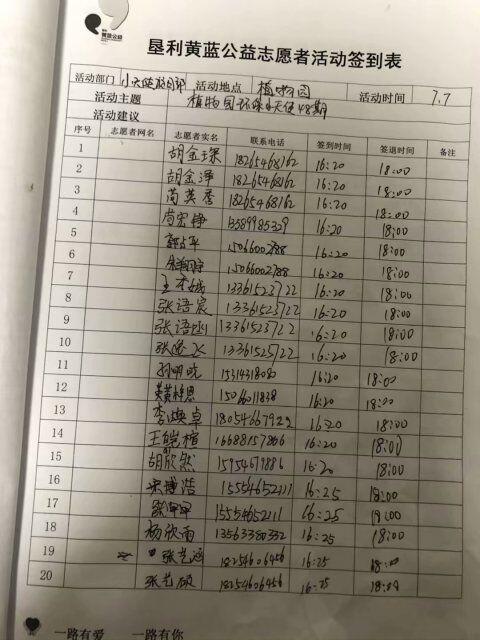 黄蓝公益
垦利黄蓝公益志愿者活动签到表
活动部门 小天使 部 活动地点 植物园 活动时间 7.7
活动主题 植物园环保小天使48期
活动建议
序号 志愿者网名 志愿者实名 联系电话 签到时间 签退时间 备注
1 胡金琛 18265468162 16:20 18:00
2 胡金泽 18265468162 16:20 18:00
3 苘英秀 18265468162 16:20 18:00
4 苘宏铮 13589985329 16:20 18:00
5 15066002788 16:20 18:00
6 15066002788 16:20 18:00
7 13361523722 16:20 18:00
8 张语宸 13361523722 16:20 18:00
9 张语 13361523722 16:20 18:00
10 张 飞 13361523722 16:20 18:00
11 孙明晓 15314318080 16:20 18:00
12 黄梓恩 15066011838 16:20 18:00
13 李焕卓 18054667922 16:20 18:00
14 王皖楦 16688157866 16:20 18:00
15 胡欣然 15954679886 16:20 18:00
16 宋博浩 15554652111 16:25 18:00
17 15554652111 16:25 18:00
18 杨欣雨 13563380332 16:25 18:00
19 张艺涵 18254606456 16:25 18:00
20 张艺硕 18254606456 16:25 18:00
一路有爱 一路有你